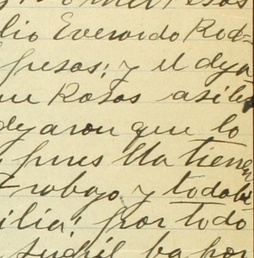 lio Everardo Rod-
pesos; y el dya
ue Rosas asiles
dejaron que lo
pues lla tienen
trabajo y todabi
ilia; por todo
ba por